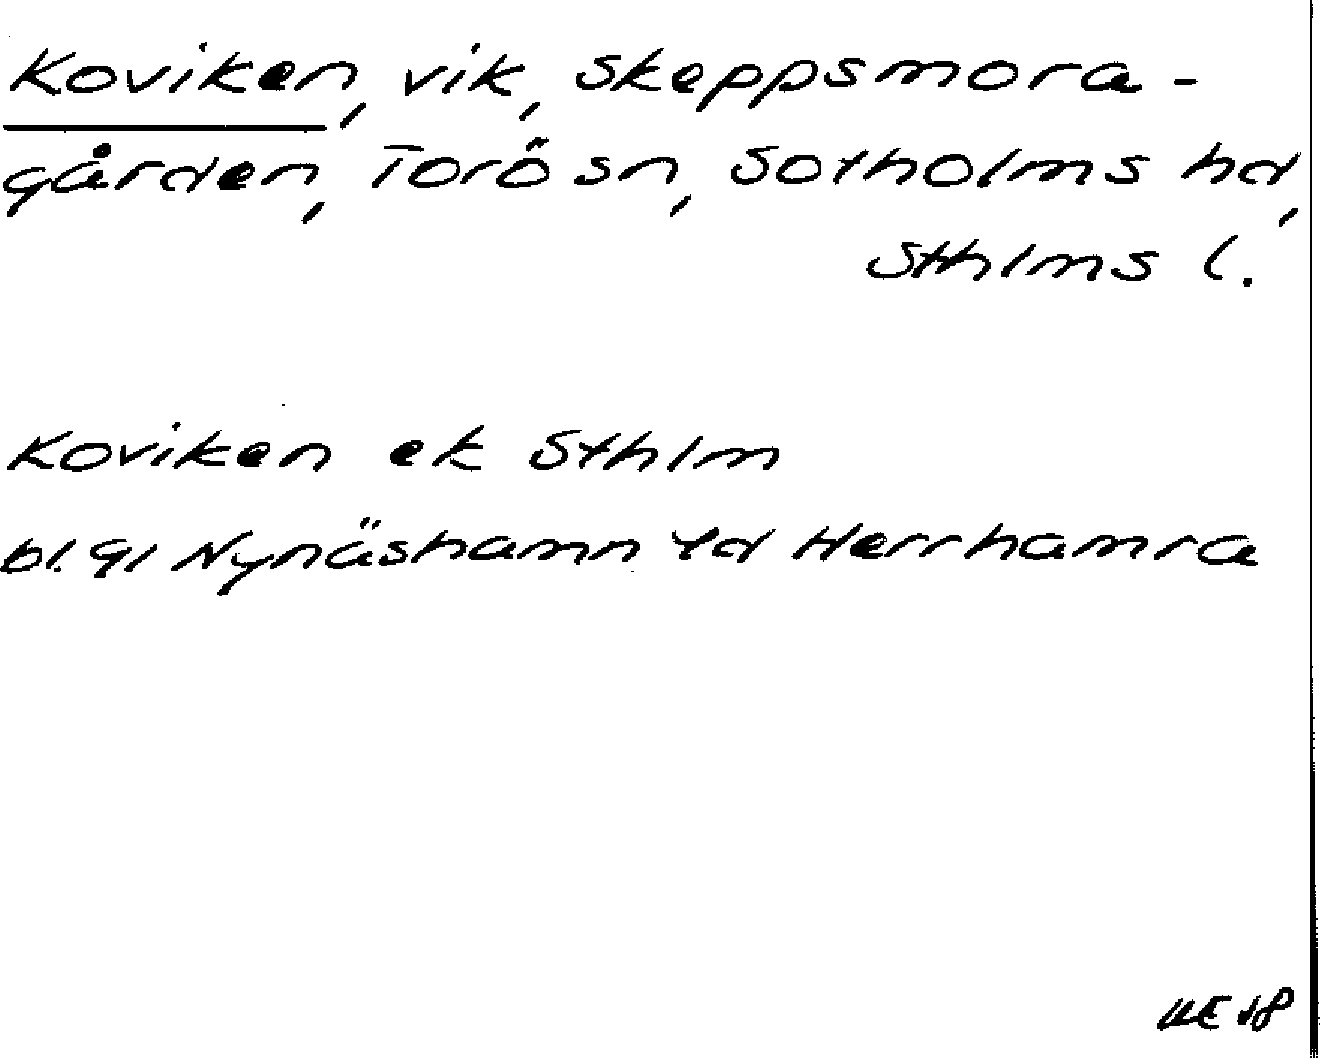 Koviken, vik, Skeppsmora-
gården, Torö sn, Sotholms hd,
Sthlms l.
Koviken ek Sthlm
bl. 91 Nynäshamn td Herrhamra